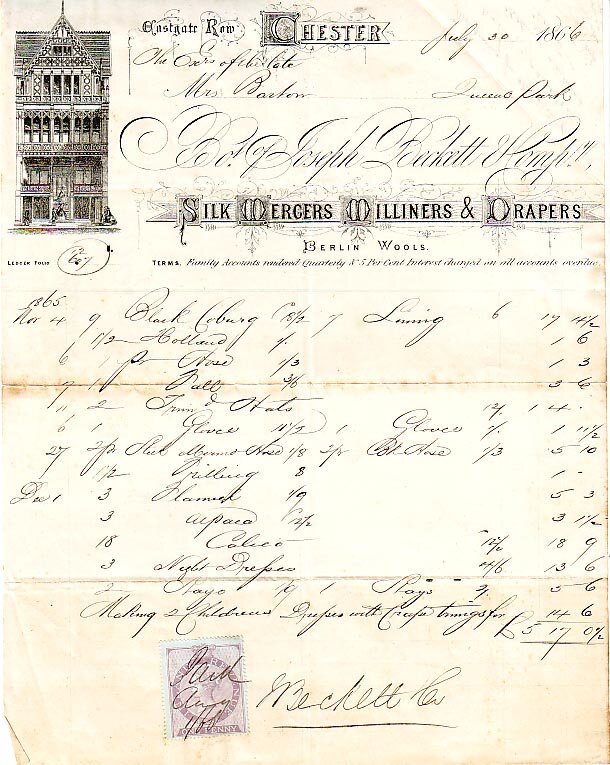 Eastgate Row CHESTER July 30 1866
The Exrs of the late
Mrs Barlow Queens Park
Bot. of Joseph Beckett &
SILK MERCERS MILLINERS & DRAPERS
BERLIN WOOLS.
LEDGER FOLIO 867
TERMS. Family Accounts rendered Quarterly & 5 Per Cent Interest charged on all accounts overdue.
1865
Nov 4 9 Black Coburg 18/2 7 Lining 6 17 4½
1 1/2 Holland 1/- 1 6
6 1 pr Hose 1/3 1 3
7 1 Fall 3/6 3 6
11 2 Trimd Hats 12/- 1 4 -
6 1 Glove 11½ 1 Glove 1/- 1 11½
27 2 pr Merino Hose 1/8 2 pr Hose 1/3 5 10
1½ Frilling 8 1 -
Dec 1 3 Flannel 1/9 5 3
3 Alpaca 12½ 3 1½
18 Calico 12½ 18 9
3 Night Dresses 4/6 13 6
2 Stays 1/9 1 Stays 2/- 5 6
Making 2 Childrens Dresses with Crape trimgs for 14 6
£ 5 17 0½
INLAND
ONE PENNY
Paid
Aug
Beckett & Co